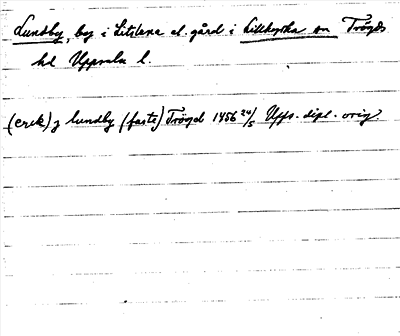 Lundby, by i Litslena el. gård i Lillkyrka sn Trögds
hd Uppsala l.
(erik) j lundby (faste) Trögd 1456 24/5 Upps. dipl. orig